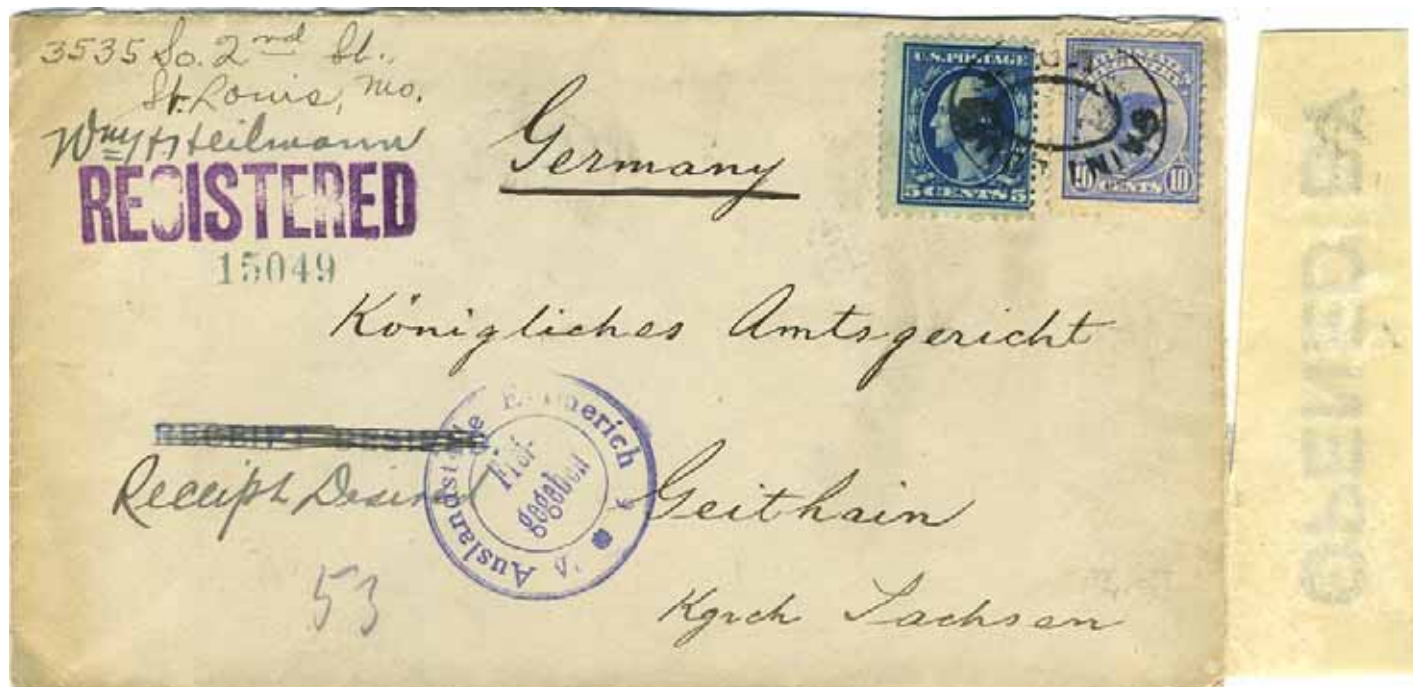 3535 So. 2nd St.,
St. Louis, Mo.
Wm H Heilmann
REGISTERED
15049
Germany
U.S. POSTAGE
5 CENTS 5
10 CENTS 10
Königliches Amtsgericht
RECEIPT DESIRED
Receipt Desired
Auslandsstelle Emmerich
Frei-
gegeben
Geithain
Kgrch Sachsen
53
OPENED BY